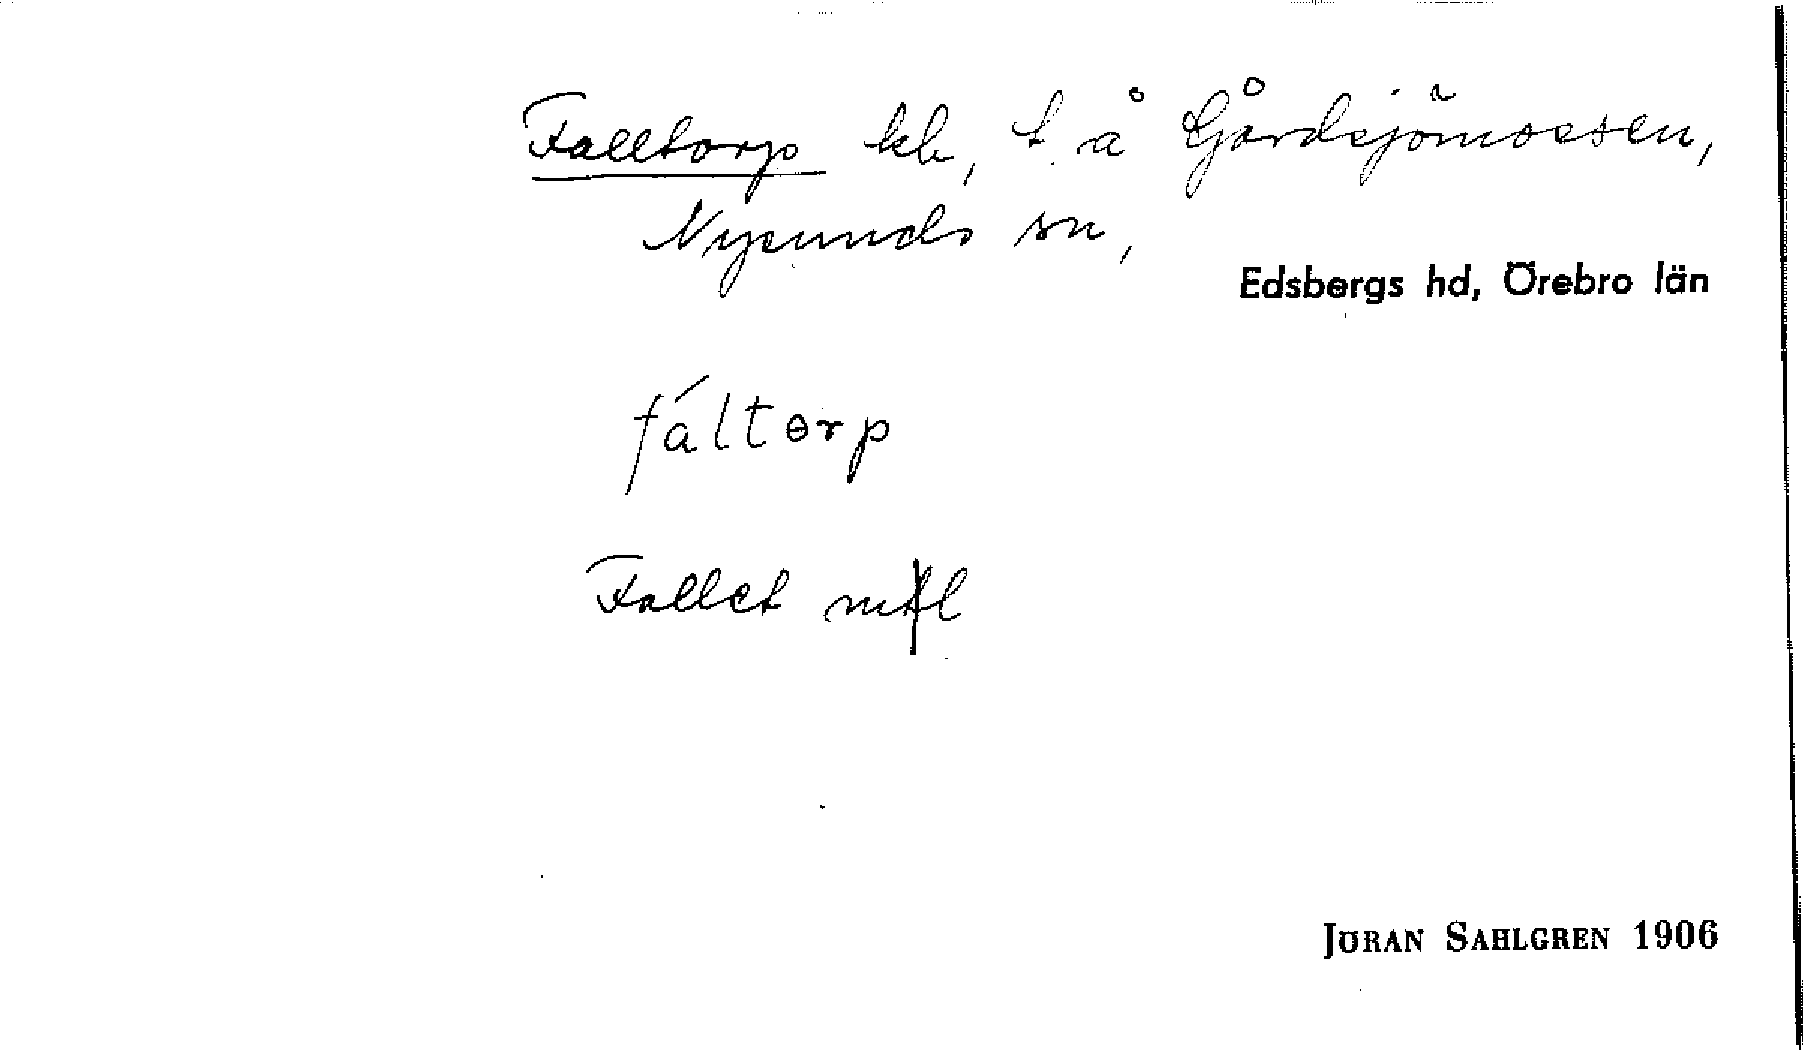 Falltorp kb, t. å Gårdsjömossen,
Nysunds sn,
Edsbergs hd, Örebro län
fáltɵrp
Fallet mtl
JÖRAN SAHLGREN 1906